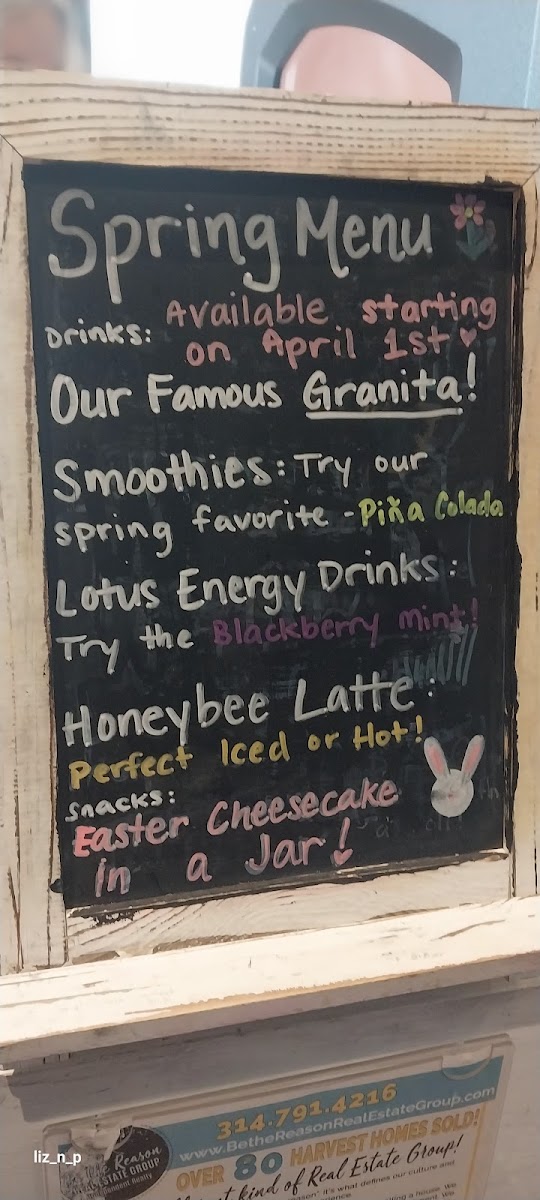 Spring Menu
Drinks: Available starting
on April 1st
Our Famous Granita!
Smoothies: Try our
spring favorite - Piña Colada
Lotus Energy Drinks:
Try the Blackberry Mint!
Honeybee Latte:
Perfect Iced or Hot!
Snacks:
Easter Cheesecake
in a Jar!
314.791.4216
www.BetheReasonRealEstateGroup.com
OVER 80 HARVEST HOMES SOLD!
kind of Real Estate Group!
Reason
ESTATE GROUP
Realty
it's what defines our culture and
a house. We
liz_n_p